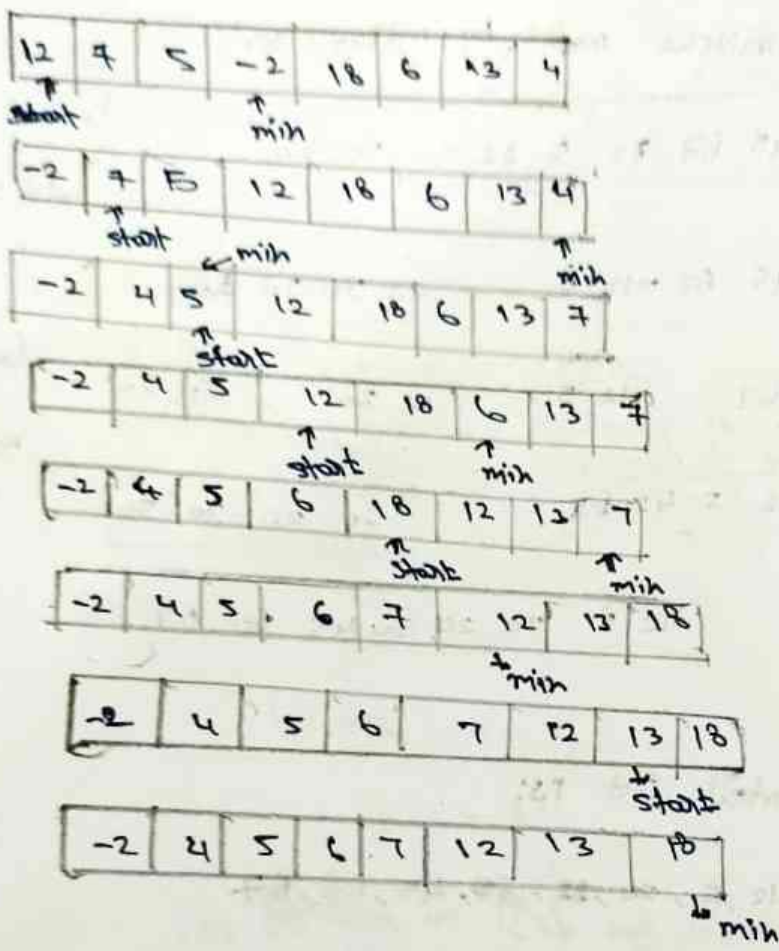 12 7 5 -2 18 6 13 4
start min
-2 7 5 12 18 6 13 4
start min
min
-2 4 5 12 18 6 13 7
start
-2 4 5 12 18 6 13 7
start min
-2 4 5 6 18 12 13 7
start min
-2 4 5 6 7 12 13 18
min
-2 4 5 6 7 12 13 18
start
-2 4 5 6 7 12 13 18
min